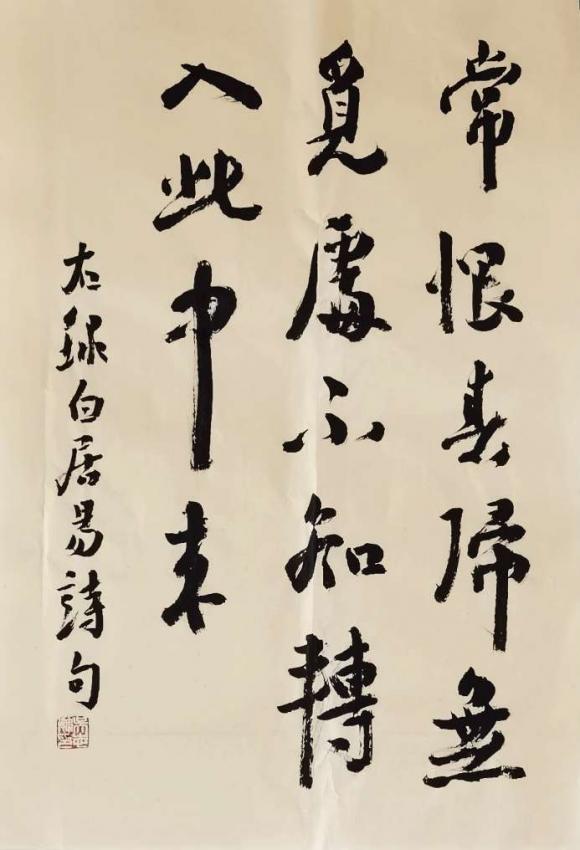 常恨春歸無
覓處不知轉
入此中來
右錄白居易詩句